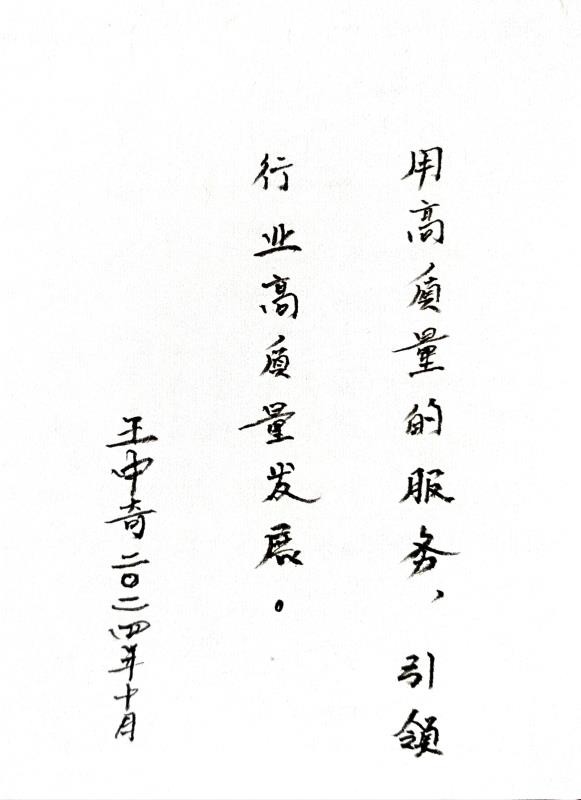 用高质量的服务、引领
行业高质量发展。
王中奇二〇二四年十月